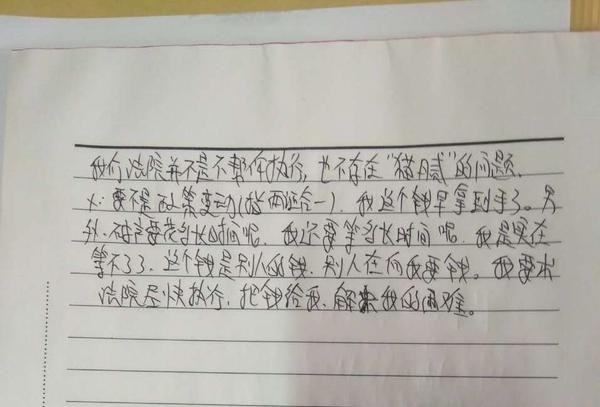 我们法院并不是不帮你执行，也不存在“猫腻”的问题．
×：要不是政策变动(指两证合一)．我这个钱早拿到手了。另
外．破产要花多长时间呢，我还要等多长时间呢，我是实在
等不了了．这个钱是别人的钱．别人在向我要钱。我要求
法院尽快执行，把钱给我．解决我的困难。